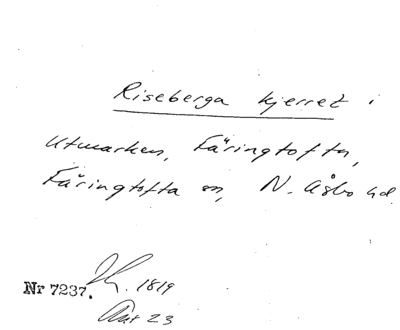 Riseberga kjerret i
Utmarken, Färingtofta,
Färingtofta sn, N. Åsbo hd.
Nr 7237. 1819
Akt 23